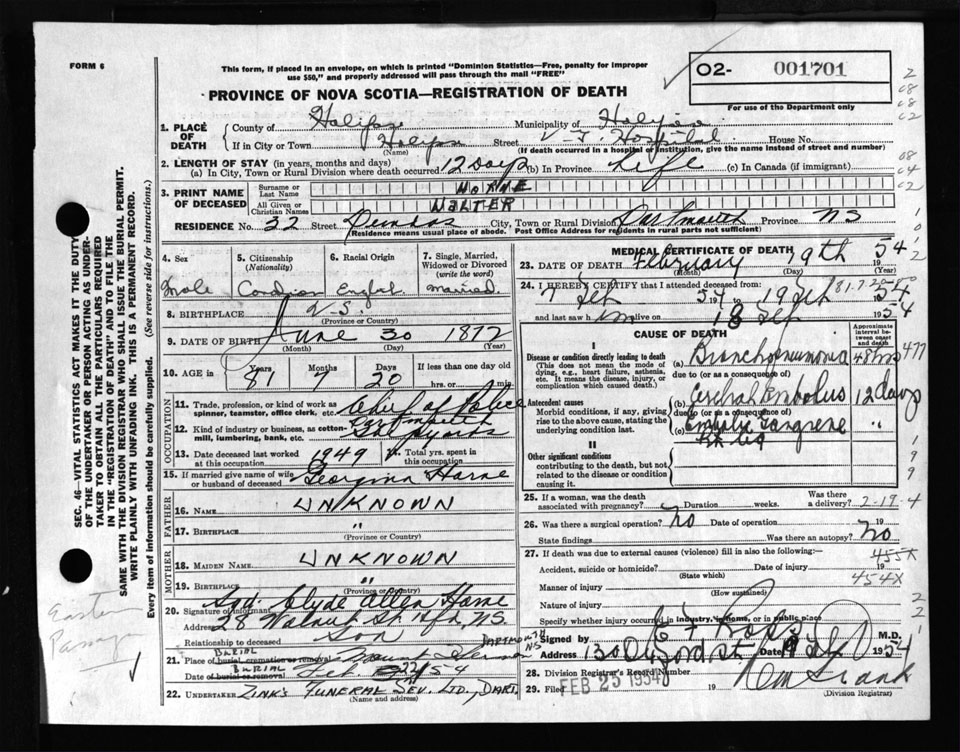 FORM 6
This form, if placed in an envelope, on which is printed "Dominion Statistics—Free, penalty for improper
use $50," and properly addressed will pass through the mail "FREE"
PROVINCE OF NOVA SCOTIA—REGISTRATION OF DEATH
O2- 001701
For use of the Department only
1. PLACE OF DEATH
County of Halifax Municipality of Halifax
If in City or Town Halifax Street V. G. Hospital House No.
(Name) (If death occurred in a hospital or institution, give the name instead of street and number)
2. LENGTH OF STAY (in years, months and days)
(a) In City, Town or Rural Division where death occurred 12 days (b) In Province Life (c) In Canada (if immigrant)
3. PRINT NAME OF DECEASED
Surname or Last Name HORNE
All Given or Christian Names WALTER
RESIDENCE No. 32 Street Dundas City, Town or Rural Division Dartmouth Province NS
(Residence means usual place of abode. Post Office Address for residents in rural parts not sufficient)
4. Sex Male
5. Citizenship (Nationality) Canadian
6. Racial Origin English
7. Single, Married, Widowed or Divorced (write the word) Married
8. BIRTHPLACE N.S.
(Province or Country)
9. DATE OF BIRTH June 30 1872
(Month) (Day) (Year)
10. AGE in Years Months Days If less than one day
81 7 20 hrs. or min.
OCCUPATION
11. Trade, profession, or kind of work as spinner, teamster, office clerk, etc. Chief of Police
12. Kind of industry or business, as cotton-mill, lumbering, bank, etc. Dartmouth
13. Date deceased last worked at this occupation 1949 Total yrs. spent in this occupation
15. If married give name of wife or husband of deceased Georgina Horne
FATHER
16. NAME UNKNOWN
17. BIRTHPLACE "
(Province or Country)
MOTHER
18. MAIDEN NAME UNKNOWN
19. BIRTHPLACE "
(Province or Country)
20. Signature of informant Clyde Allen Horne
Address 28 Walnut St. Hfx, N.S.
Relationship to deceased Son
DARTMOUTH NS
21. Place of burial, cremation or removal BURIAL Mount Hermon
Date of burial or removal BURIAL Feb. 22 1954
22. UNDERTAKER ZINK'S FUNERAL SEV. LTD., DART.
(Name and address)
MEDICAL CERTIFICATE OF DEATH
23. DATE OF DEATH February 19th 1954
(Month) (Day) (Year)
24. I HEREBY CERTIFY that I attended deceased from:
7 Feb 54 to 19 Feb 1954
and last saw him alive on 18 Feb 1954
CAUSE OF DEATH
Approximate interval between onset and death
I
Disease or condition directly leading to death
(This does not mean the mode of dying, e.g., heart failure, asthenia, etc. It means the disease, injury, or complication which caused death.)
(a) Bronchopneumonia 48 hrs
due to (or as a consequence of)
Antecedent causes
Morbid conditions, if any, giving rise to the above cause, stating the underlying condition last.
(b) Cerebral Embolus 12 days
due to (or as a consequence of)
(c) Embolic Gangrene "
II
Other significant conditions
contributing to the death, but not related to the disease or condition causing it.
25. If a woman, was the death associated with pregnancy? Duration weeks. Was there a delivery?
2-19-4
26. Was there a surgical operation? No Date of operation 19
State findings Was there an autopsy? No
27. If death was due to external causes (violence) fill in also the following:—
455X
Accident, suicide or homicide? Date of injury 19
(State which)
454X
Manner of injury
(How sustained)
Nature of injury
Specify whether injury occurred in industry, in home, or in public place
Signed by M.D.
Address 130 Oxford St. Date 19 Feb 1954
28. Division Registrar's Record Number
29. Filed FEB 25 1954 19
(Division Registrar)
SEC. 46—VITAL STATISTICS ACT MAKES IT THE DUTY
OF THE UNDERTAKER OR PERSON ACTING AS UNDER-
TAKER TO OBTAIN ALL THE PARTICULARS REQUIRED
IN THE "REGISTRATION OF DEATH" AND TO FILE THE
SAME WITH THE DIVISION REGISTRAR WHO SHALL ISSUE THE BURIAL PERMIT.
WRITE PLAINLY WITH UNFADING INK. THIS IS A PERMANENT RECORD.
Every item of information should be carefully supplied. (See reverse side for instructions.)
Eastern
Passage